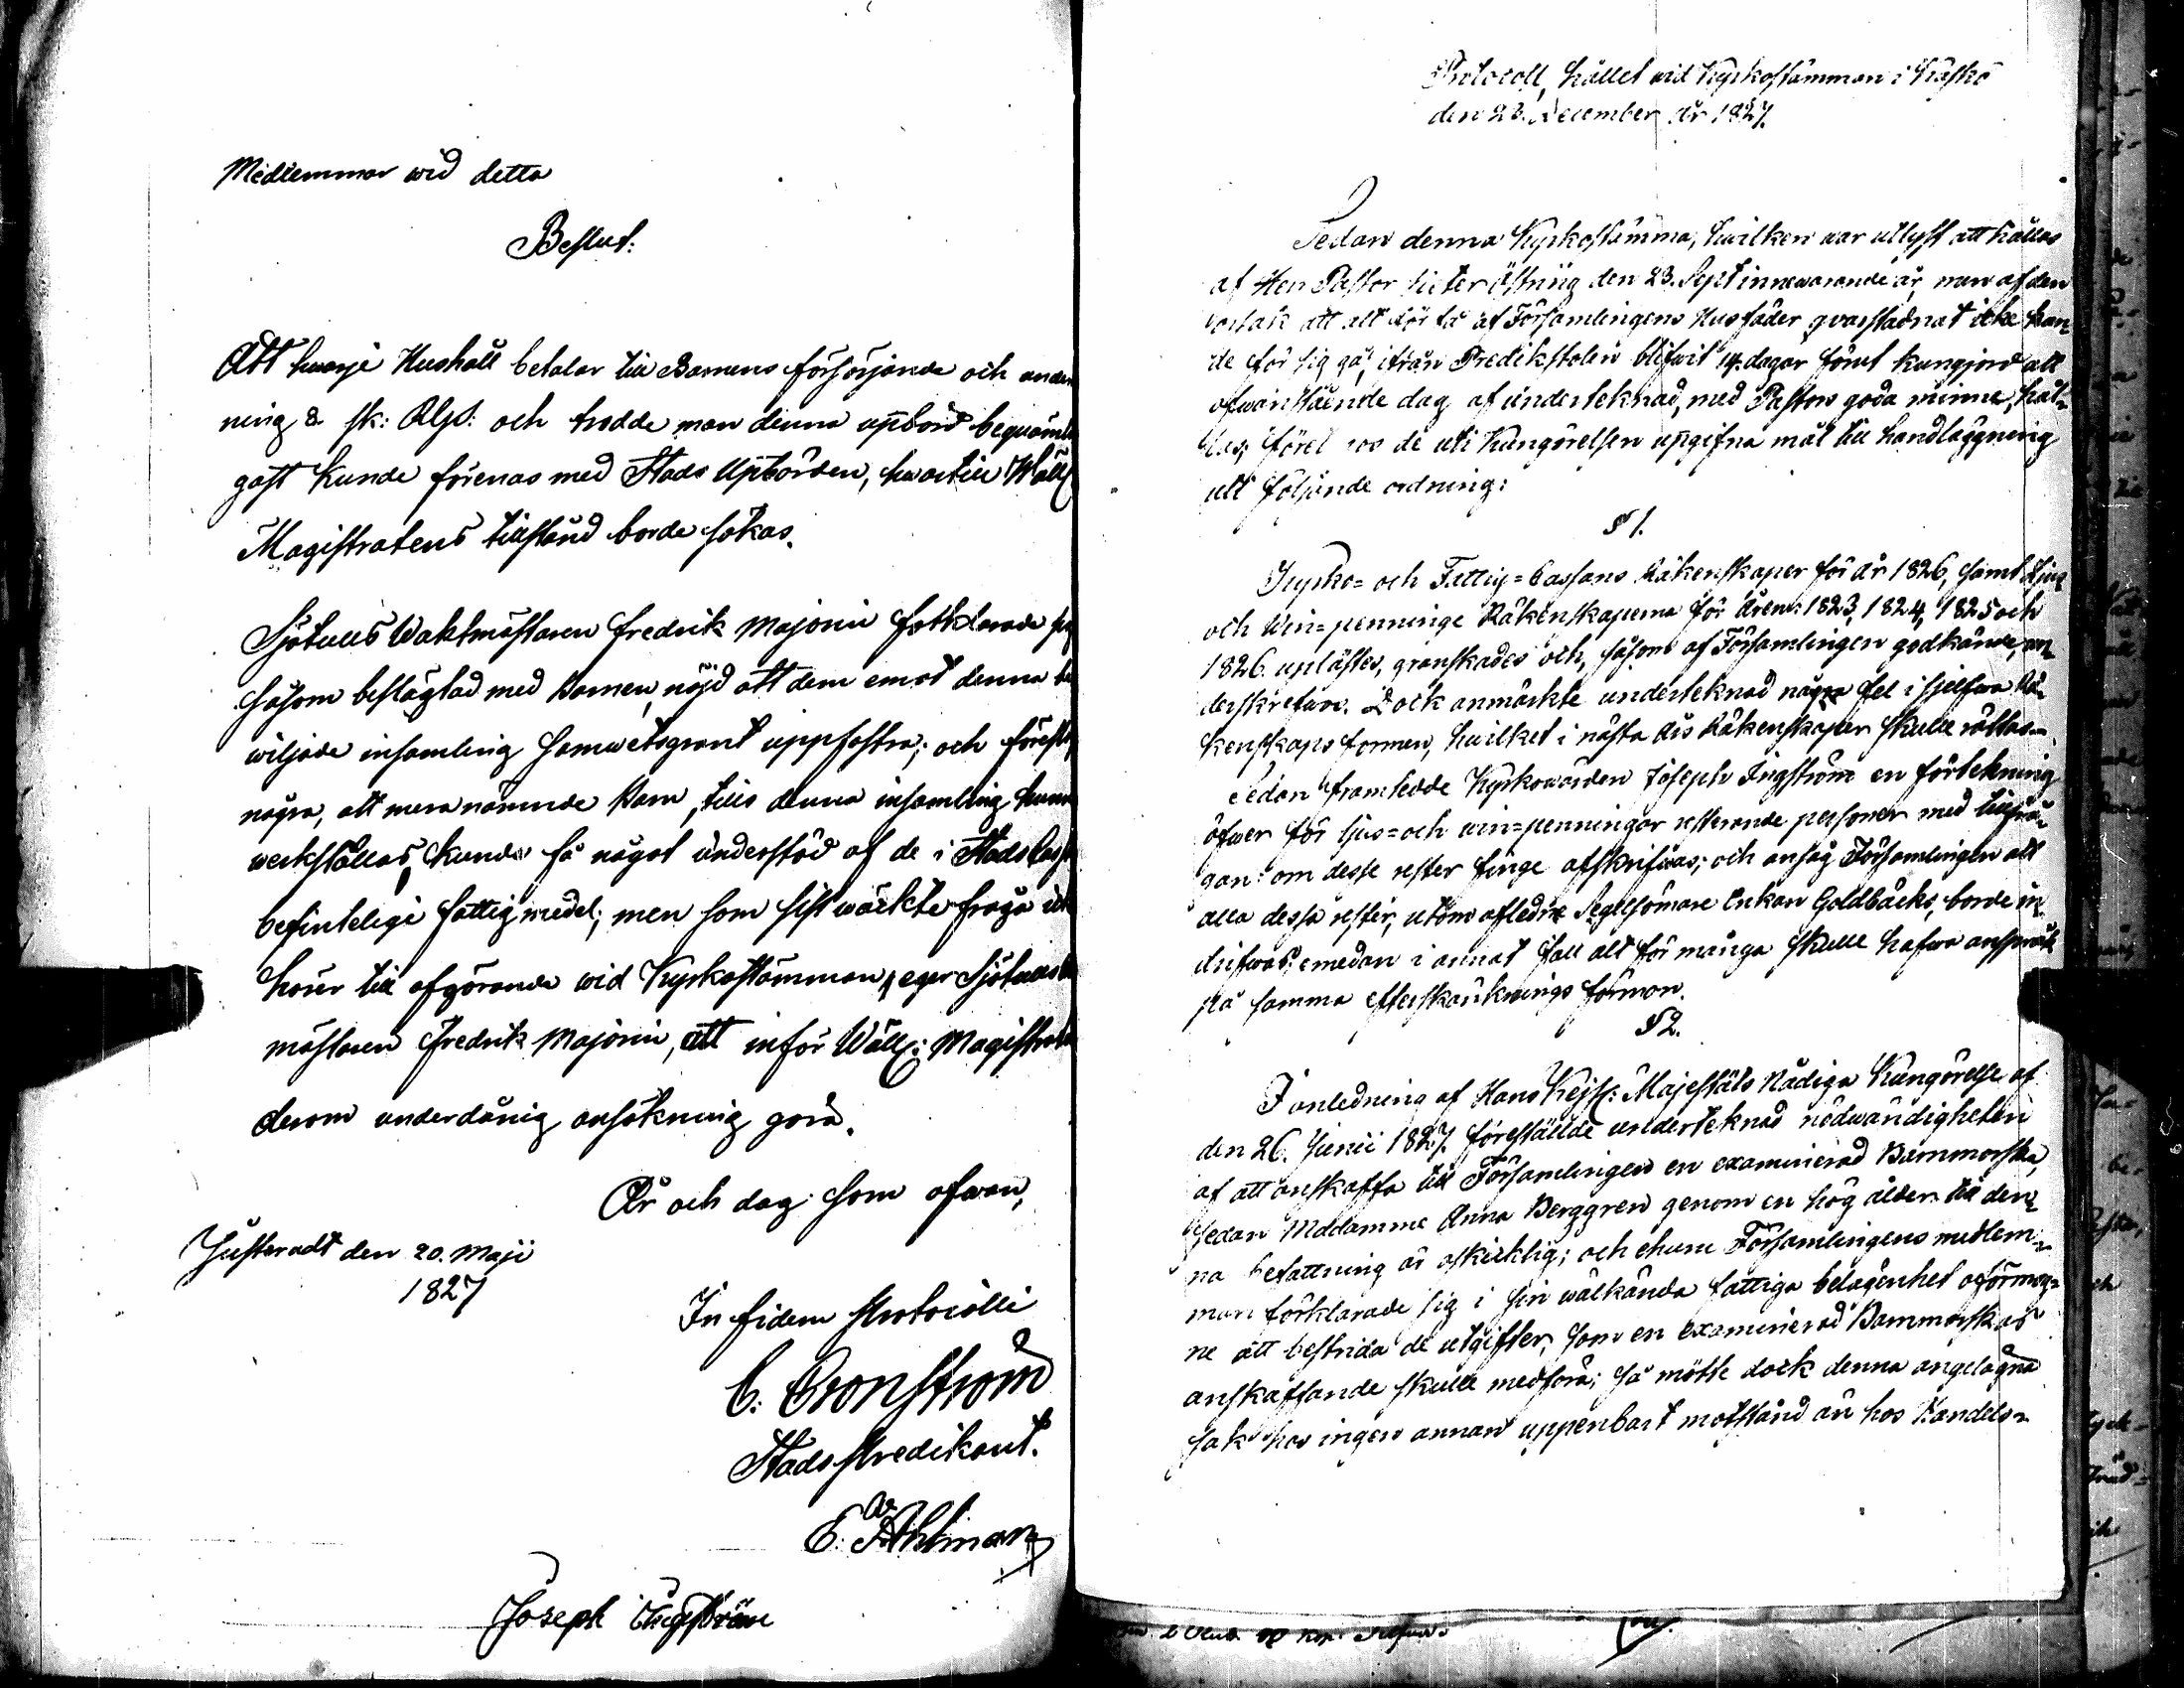 Medlemmar wid detta
Beslut:
Att hwarje Hushåll betalar till Barnens försörjande och
ning 8 sk: Rgs: och trodde man denna upbörd beqvämli
gast kunde förenas med Stads Upbörden, hwartill Wäll:
Magistratens tillstånd borde sökas.
Sjötulls Waktmästaren Fredrik Majorin förklarade sig
såsom beslägtad med Barnen, nöjd att dem emot denna be
wiljade insamling samwetsgrant uppfostra; och
några, att mera nämnde Barn, tills denna insamling hunne
werkställas, kunde få något understöd af de i Stads Cassan
befintelige fattigmedel; men som sist wäckte fråga icke
hörer till afgörande wid Kyrkostämman, eger Sjötulls
mästaren Fredrik Majorin, att inför Wäll: Magistraten
derom underdånig ansökning göra.
År och dag som ofwan,
Justeradt den 20. Maji
1827
In fidem Protocolli
C. Cronström
Stads Predikant.
E. W. Ahlman
Joseph Ingström
Protocoll, hållet wid Kyrkostämman i Kaskö
den 23. December år 1827.
Sedan denna Kyrkostämma, hwilken war utlyst att hållas
af Herr Pastor Östring den 23. Sept innewarande år, men af den
orsak att allt för få af Församlingens Husfäder qvarstadnat icke kun-
de för sig gå, ifrån Predikstolen blifwit 14. dagar förut kungjord att
ofwanstående dag af undertecknad, med Pastors goda minne, hål-
las, de uti Kungörelsen upgifna mål till handläggning
uti följande ordning:
§ 1.
Kyrko- och Fattig-Cassans Räkenskaper för år 1826, samt Ljus
och Win-penninge Räkenskaperna för åren: 1823, 1824, 1825 och
1826. uplästes, granskades och, såsom af Församlingen godkände, un-
derskrefwos. Dock anmärkte undertecknad några fel i sjelfwa Rä-
kenskaps formen, hwilket i nästa års Räkenskaper skulle rättas.
Sedan framtedde Kyrkowärden Joseph Ingström en förtekning
öfwer för ljus- och win-penningar resterande personer med tillfrå-
gan: om desse rester finge afskrifwas; och ansåg Församlingen att
alla dessa rester, utom afledne Segelsömare Enkan Goldbäcks, borde in-
drifwas: emedan i annat fall alt för många skulle hafwa anspråk
på samma efterskänknings förmon.
§ 2.
I anledning af Hans Kejs: Majestäts Nådiga Kungörelse af
den 26. Junii 1827. föreställde undertecknad nödwändigheten
af att anskaffa till Församlingen en examinerad Barnmorska,
sedan Mddamme Anna Berggren genom en hög ålder till den-
na befattning är oskicklig; och ehuru Församlingens medlem-
mar förklarade sig i sin wälkända fattiga belägenhet oförmög-
ne att bestrida de utgifter, som en examinerad Barnmorskas
anskaffande skulle medföra; så mötte dock denna angelägna
sak hos ingen annan uppenbart motstånd än hos Handels-